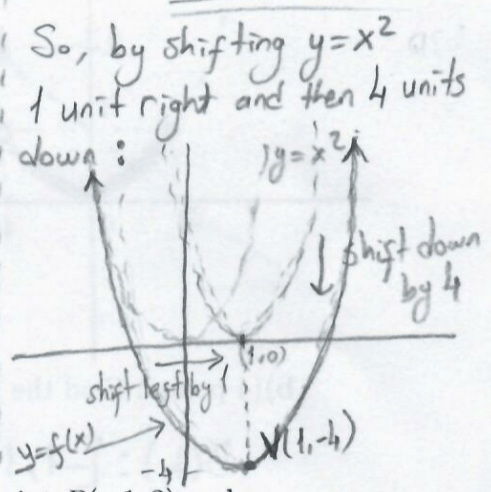 So, by shifting y=x²
1 unit right and then 4 units
down :
y=x²
shift down
by 4
(1,0)
shift left by 1
y=f(x)
V(1,-4)
-4